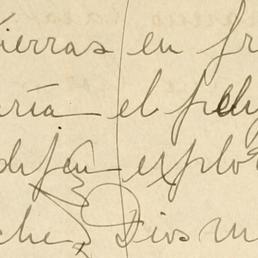 tierras en fr
ría el pelig
dejen explo
che, Dios m